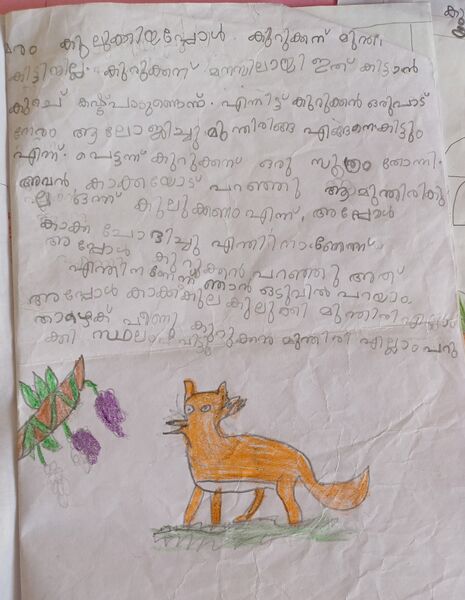 മരം കുലുക്കിയപ്പോൾ. കുറുക്കന് മുന്തി
കിട്ടിയില്ല. കുറുക്കന് മനസിലായി ഇത് കിട്ടാൻ
കുറച് കഷ്ട്പാടുണ്ടെന്ന്. എന്നിട്ട് കുറുക്കൻ ഒരുപാട്
നേരം ആലോജിച്ചു മുന്തിരിങ്ങ എങ്ങനെകിട്ടും
എന്ന്. പെട്ടന്ന് കുറുക്കന് ഒരു സൂത്രം തോന്നി.
അവൻ കാക്കയോട് പറഞ്ഞു ആമുന്തിരിതു
ല്ല ഒന്ന് കുലുക്കണം എന്ന്, അപ്പോൾ
കാക്ക ചോദിച്ചു എന്തിനാണേന്ന്
അപ്പോൾ കുറുക്കൻ പറഞ്ഞു അത്
എന്തിനാണേന്ന് ഞാൻ ഒടുവിൽ പറയാം.
അപ്പോൾ കാക്ക കുല കുലുക്കി മുന്തിരി എല്ലാം
താഴേക്ക് വീണു കുറുക്കൻ മുന്തിരി എല്ലാം പറു
ക്കി സ്ഥലം